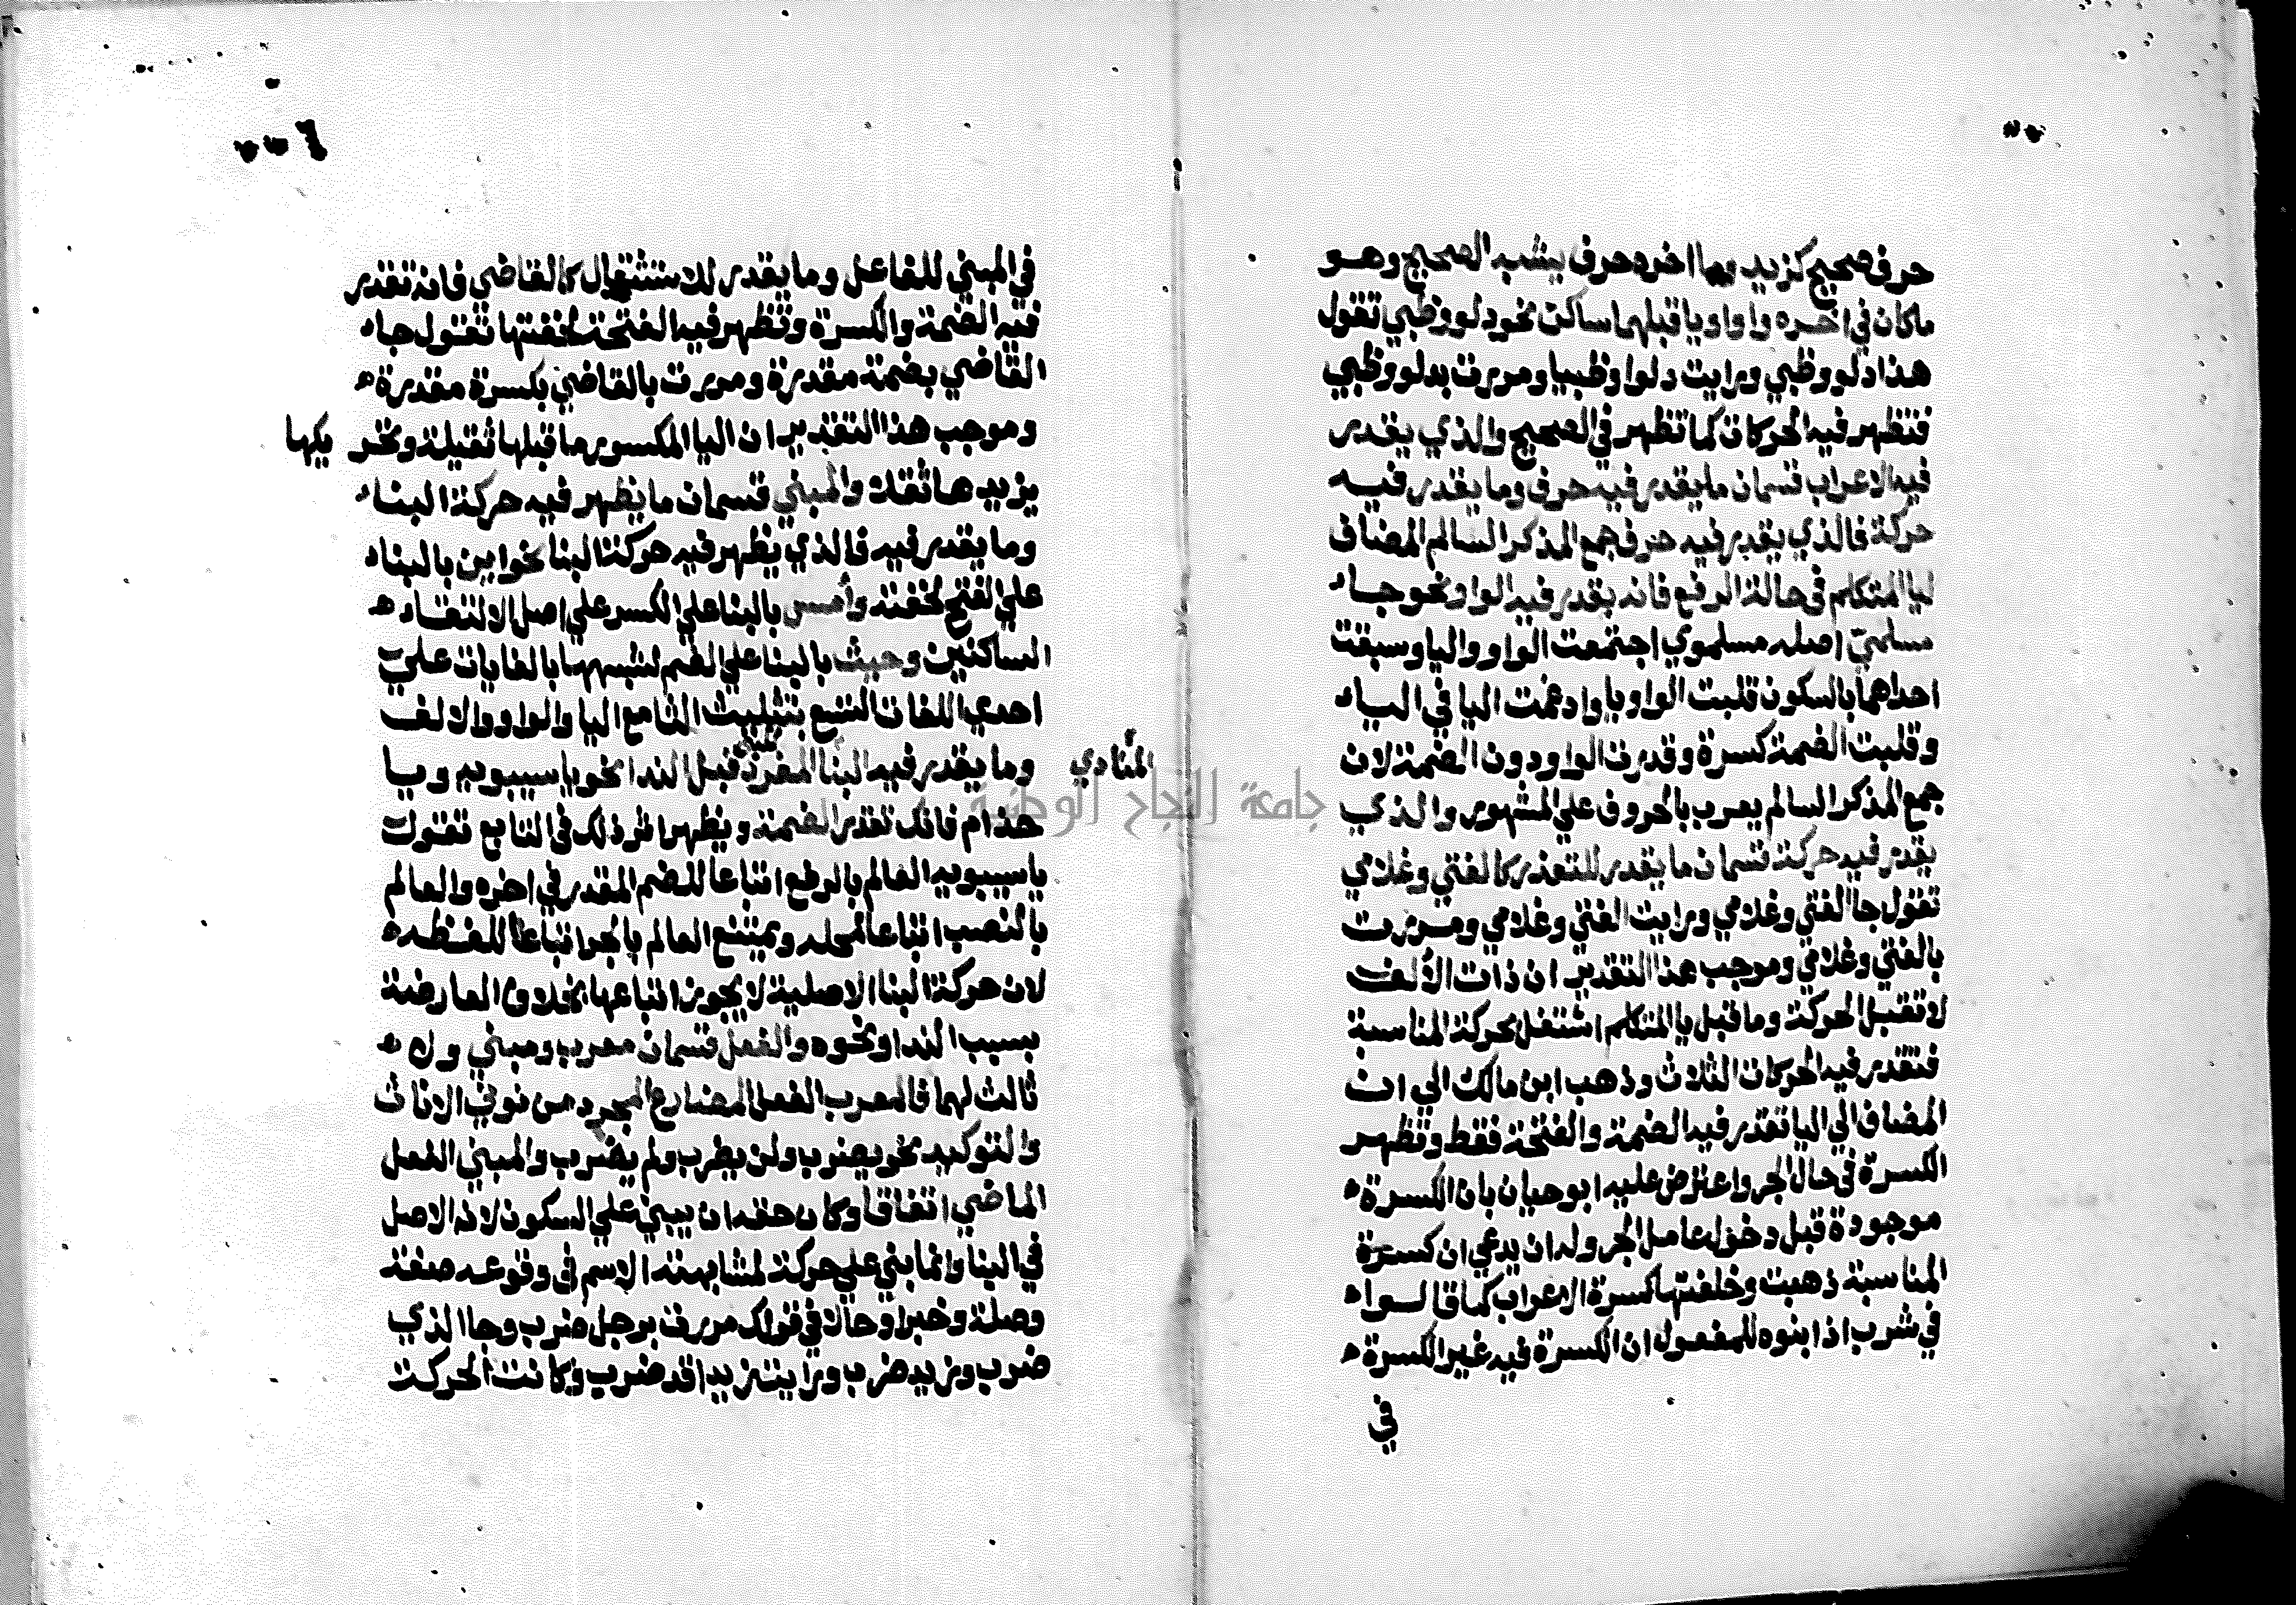 حرف صحيح كزيد وما اخره حرف يشبه الصحيح وهو
ماكان في اخره واو او يا قبلها ساكن نحو دلو وظبي تقول
هذا دلو وظبي ورايت دلوا وظبيا ومررت بدلو وظبي
فتظهر فيه الحركات كما تظهر في الصحيح والذي يقدر
فيه الاعراب قسمان ما يقدر فيه حرف وما يقدر فيه
حركة فالذي يقدر فيه حرف جمع المذكر السالم المضاف
ليا المتكلم في حالة الرفع فانه يقدر فيه الواو نحو جاء
مسلميّ اصله مسلموي اجتمعت الواو واليا وسبقت
احداهما بالسكون قلبت الواو يا وادغمت اليا في الياء
وقلبت الضمة كسرة وقدرت الواو دون الضمة لان
جمع المذكر السالم يعرب بالحروف علي المشهور والذي
يقدر فيه حركة قسمان ما يقدر للتعذر كالفتي وغلامي
تقول جا الفتي وغلامي ورايت الفتي وغلامي ومررت
بالفتي وغلامي وموجب هذا التقدير ان ذات الالف
لا تقبل الحركة وما قبل يا المتكلم اشتغل بحركة المناسبة
فتقدر فيه الحركات الثلاث وذهب ابن مالك الي ان
المضاف الي اليا تقدر فيه الضمة والفتحة فقط وتظهر
الكسرة في حال الجر واعترض عليه ابو حيان بان الكسرة
موجودة قبل دخول عامل الجر وله ان يدعي ان كسرة
المناسبة ذهبت وخلفتها كسرة الاعراب كما قالوا
في شرب اذا بنوه للمفعول ان الكسرة فيه غير الكسرة
في
في المبني للفاعل وما يقدر للاستثقال كالقاضي فانه تقدر
فيه الضمة والكسرة وتظهر فيه الفتحة لخفتها تقول جاء
القاضي بضمة مقدرة ومررت بالقاضي بكسرة مقدرة
وموجب هذا التقدير ان اليا المكسور ما قبلها ثقيلة وتحر يكها
يزيدها ثقلا والمبني قسمان ما يظهر فيه حركة البناء
وما يقدر فيه فالذي يظهر فيه حركة البنا نحو اين بالبناء
علي الفتح لخفته وأمس بالبنا علي الكسر علي اصل الالتقاء
الساكنين وحيث بالبنا علي الضم لشبهها بالغايات علي
احدي اللغات التسع بتثليث الثا مع اليا والواو والالف
وما يقدر فيه البنا المفرد قبل الندا نحو يا سيبويه ويا
المنادي
حذام فانك تقدر الضمة ويظهر اثر ذلك في التابع تقول
يا سيبويه العالم بالرفع اتباعا للضم المقدر في اخره والعالم
بالنصب اتباعا لمحله ويمتنع العالم بالجر اتباعا للفظه
لان حركة البنا الاصلية لا يجوز اتباعها بخلاف العارضة
بسبب الندا ونحوه والفعل قسمان معرب ومبني ولا
ثالث لهما فالمعرب الفعل المضارع المجرد من نوني الاناث
والتوكيد نحو يضرب ولن يضرب ولم يضرب والمبني الفعل
الماضي اتفاقا وكان حقه ان يبني علي السكون لانه الاصل
في البنا وانما بني علي حركة لمشابهته الاسم في وقوعه صفة
وصلة وخبرا وحالا في قولك مررت برجل ضرب وجا الذي
ضرب وزيد ضرب ورايت زيدا قد ضرب وكانت الحركة
جامعة النجاح الوطنية